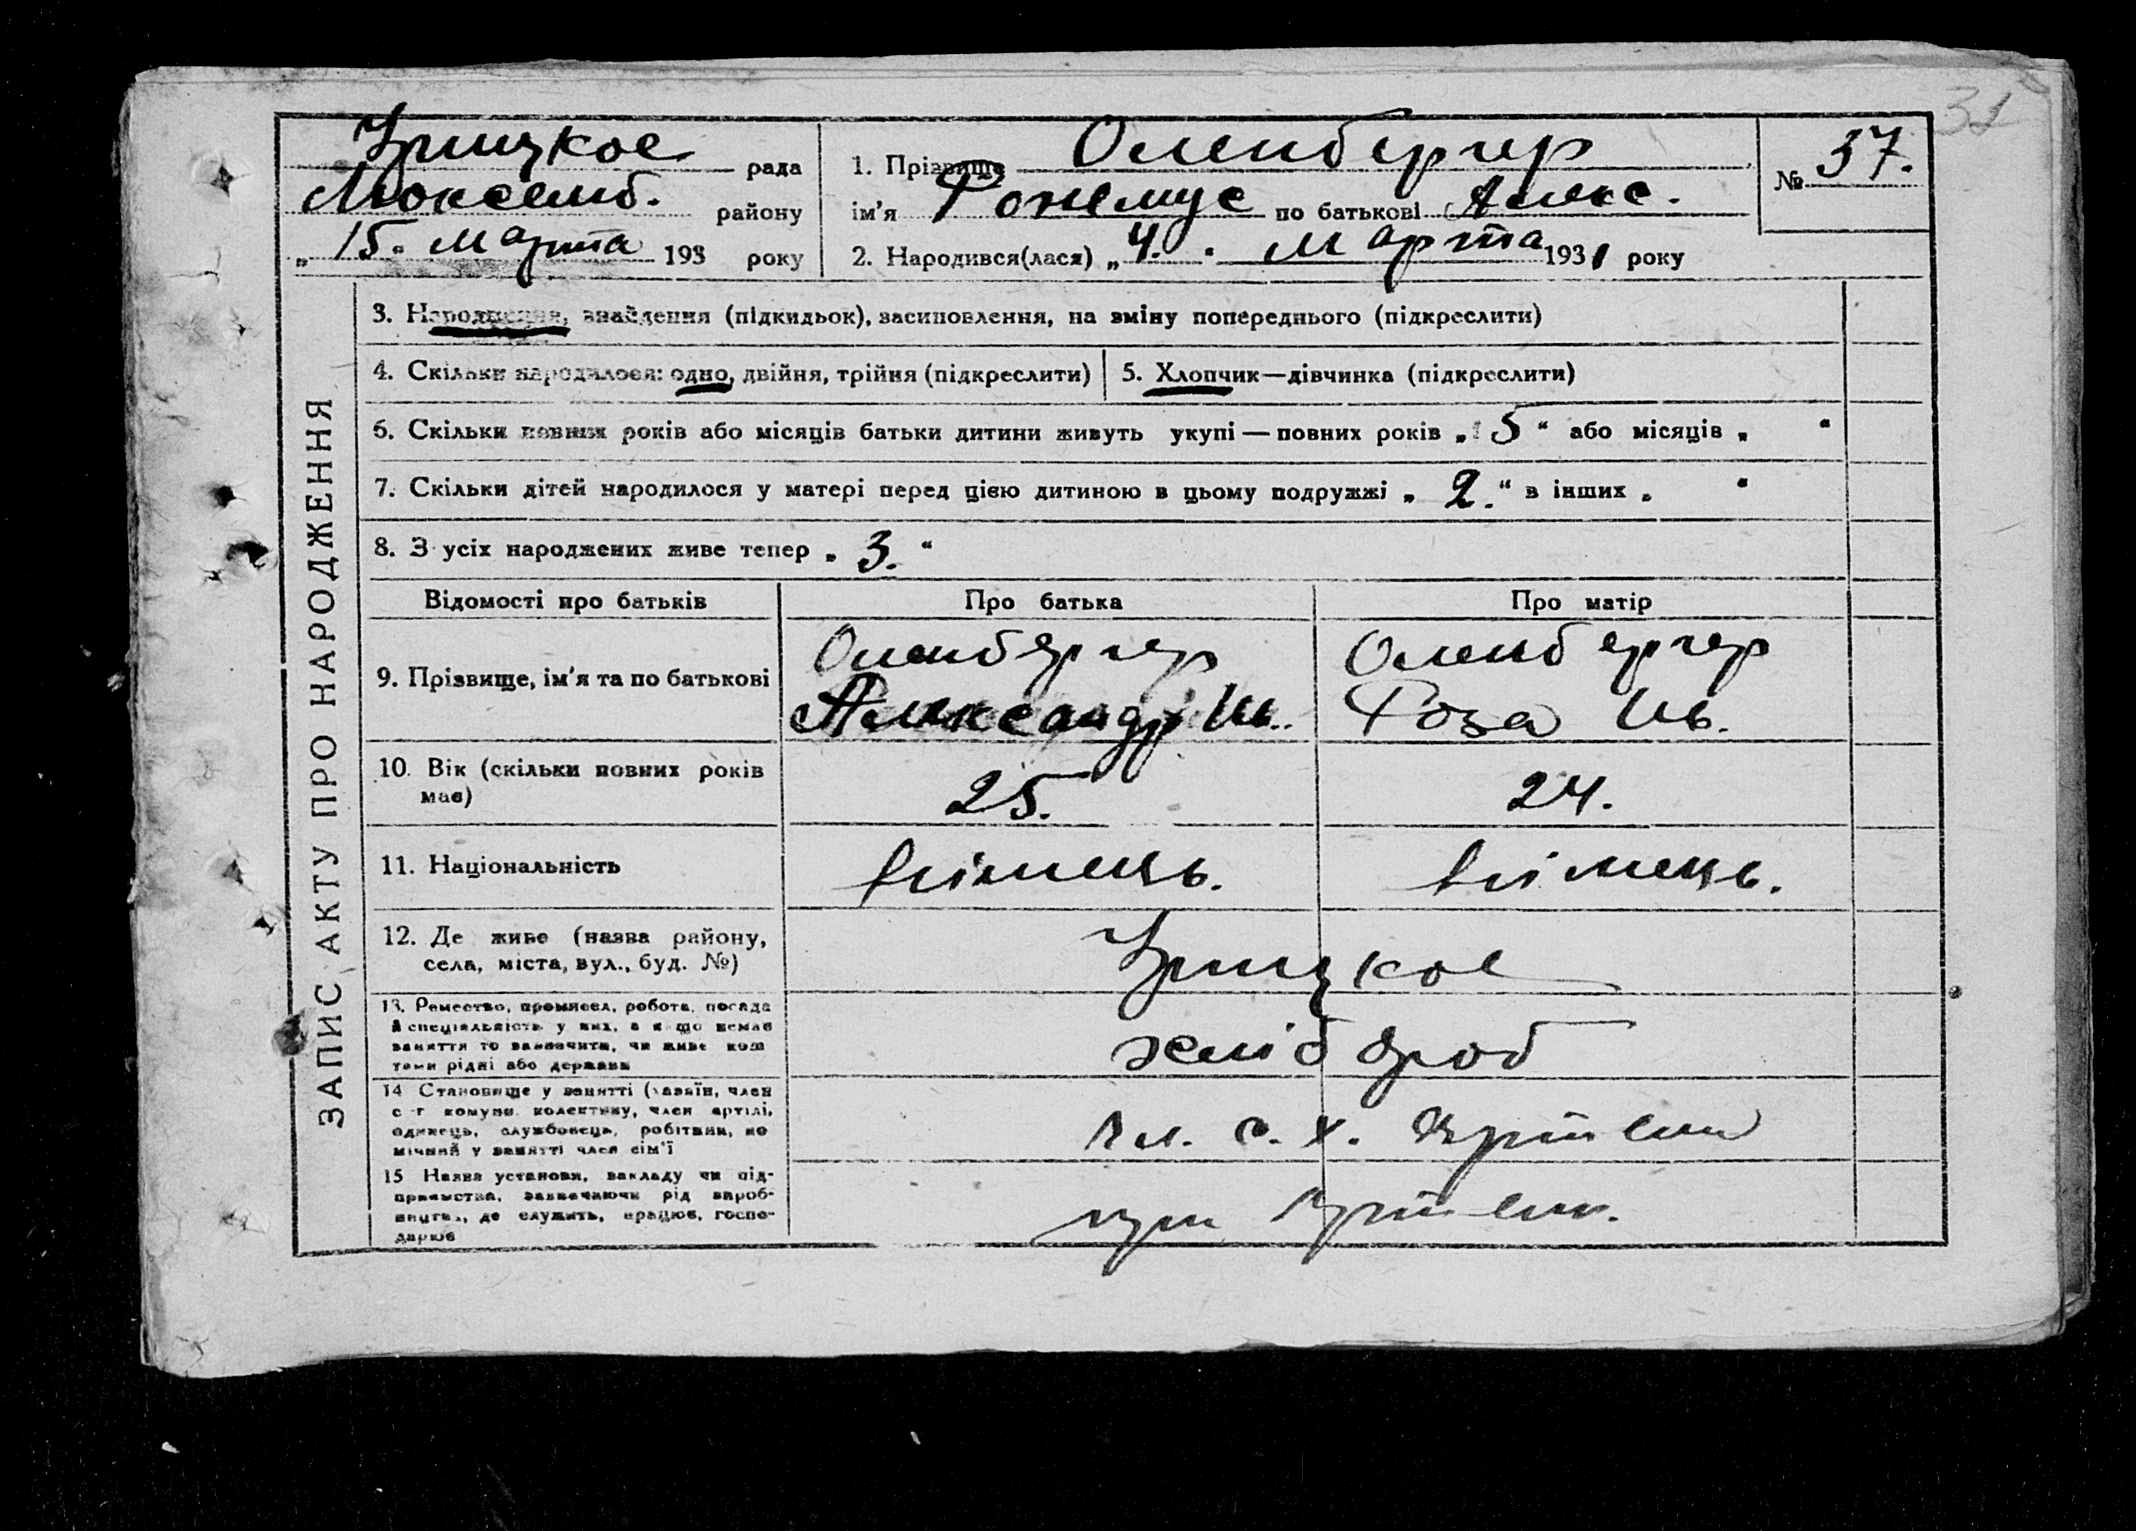 31
Урицкое рада
Люксемб. району
„ 15. Марта 193 року
1. Прізвище Оленбергер
ім'я по батькові Алекс.
2. Народився(лася) „ 4. Марта 1931 року
№ 37.
ЗАПИС АКТУ ПРО НАРОДЖЕННЯ
3. Народження, знайдення (підкидьок), засиновлення, на зміну попереднього (підкреслити)
4. Скільки народилося: одно, двійня, трійня (підкреслити)
5. Хлопчик—дівчинка (підкреслити)
6. Скільки повних років або місяців батьки дитини живуть укупі — повних років „ 5 “ або місяців „ “
7. Скільки дітей народилося у матері перед цією дитиною в цьому подружжі „ 2. “ в інших „ “
8. З усіх народжених живе тепер „ 3. “
Відомості про батьків
Про батька
Про матір
9. Прізвище, ім'я та по батькові
Оленбергер
Александр Ив.
Оленбергер
Роза Ив.
10. Вік (скільки повних років
має)
25.
24.
11. Національність
німець.
німець.
12. Де живе (назва району,
села, міста, вул., буд. №)
Урицкое
13. Ремество, промисел, робота, посада
й спеціяльність у них, а якщо немає
заняття то зазначити, чи живе кош
тами рідні або держави
хлібороб
14 Становище у занятті (хазяїн, член
с-г комуни, колективу, член артілі,
одинець, службовець, робітник, по
мічний у занятті член сім'ї
чл. с. х. Артели
15 Назва установи, закладу чи під-
приємства, зазначаючи рід вироб-
ництва, де служить, працює, госпо-
дарює
при Артели.